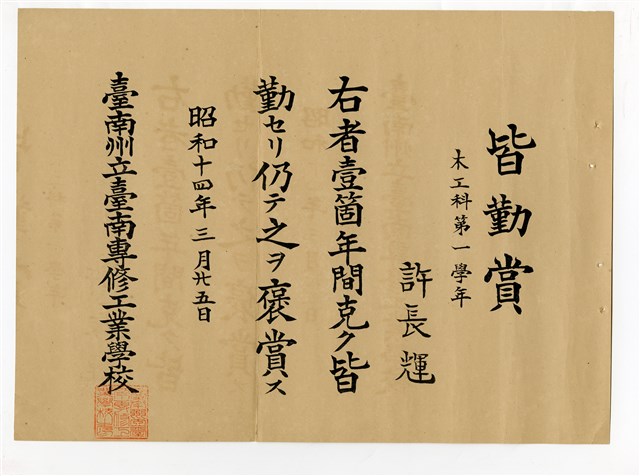 皆勤賞
木工科第一學年
許長輝
右者壹箇年間克ク皆
勤セリ仍テ之ヲ褒賞ス
昭和十四年三月廿五日
臺南州立臺南專修工業學校